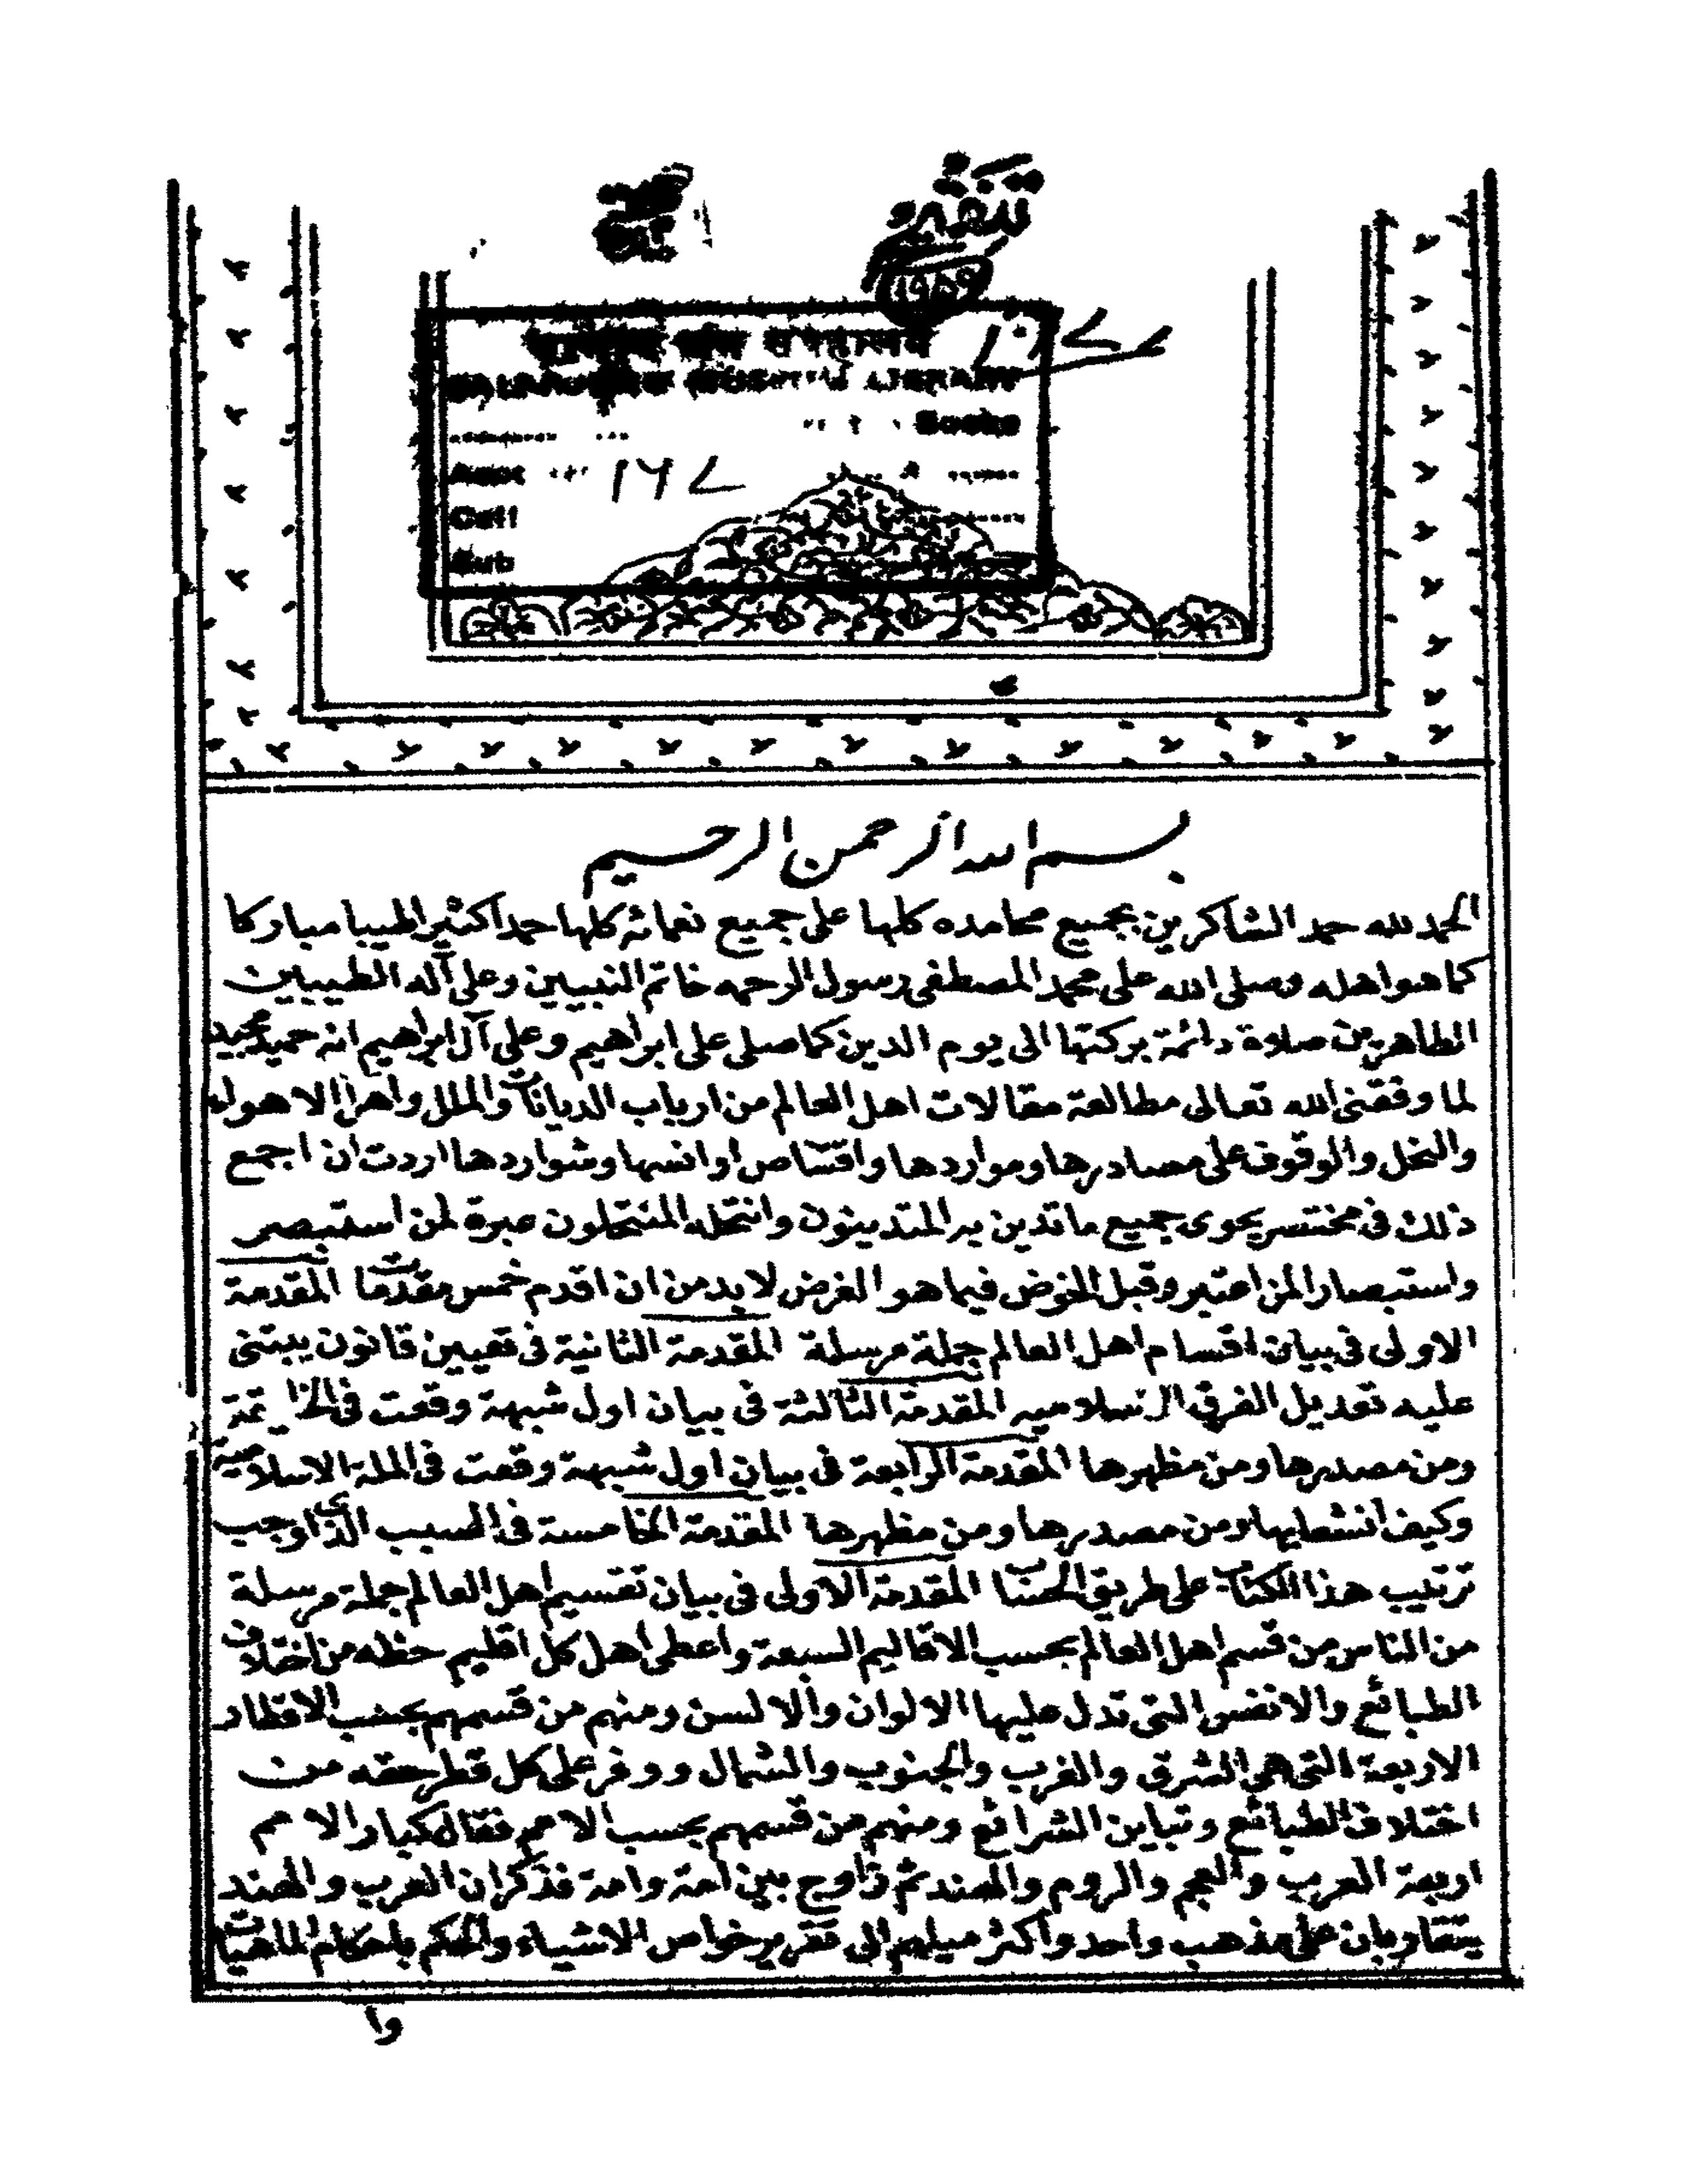 تنقيح
١٩٥٩
सालारजंग संग्रहालय
SALAR JUNG MUSEUM LIBRARY
Books
Acct ١٦٧
Call
Sub
بسم الله الرحمن الرحيم
الحمد لله حمد الشاكرين بجميع محامده كلها على جميع نعمائه كلها حمدا كثيرا طيبا مباركا
كما هو اهله وصلى الله على محمد المصطفى رسول الرحمه خاتم النبيين وعلى آله الطيبين
الطاهرين صلاة دائمة بركتها الى يوم الدين كما صلى على ابراهيم وعلى آل ابراهيم انه حميد مجيد
لما وفقنى الله تعالى مطالعة مقالات اهل العالم من ارباب الديانات والملل واهل الاهواء
والنحل والوقوف على مصادرها ومواردها واقتناص اوانسها وشواردها اردت ان اجمع
ذلك فى مختصر يحوى جميع ما تدين به المتدينون وانتحله المنتحلون عبرة لمن استبصر
واستبصارا لمن اعتبر وقبل الخوض فيما هو الغرض لا بد من ان اقدم خمس مقدمات المقدمة
الاولى فى بيان اقسام اهل العالم جملة مرسلة المقدمة الثانية فى تعيين قانون يبتنى
عليه تعديل الفرق الاسلاميه المقدمة الثالثة فى بيان اول شبهة وقعت فى الخا يمة
ومن مصدرها ومن مظهرها المقدمة الرابعة فى بيان اول شبهة وقعت فى الملة الاسلامية
وكيف انشعابها ومن مصدرها ومن مظهرها المقدمة الخامسة فى السبب الذى اوجب
ترتيب هذا الكتاب على طريق الحساب المقدمة الاولى فى بيان تقسيم اهل العالم جملة مرسلة
من الناس من قسم اهل العالم بحسب الاقاليم السبعة واعطى اهل كل اقليم حظه من اختلاف
الطبائع والانفس التى تدل عليها الالوان والالسن ومنهم من قسمهم بحسب الاقطار
الاربعة التى هى الشرق والغرب والجنوب والشمال ووفر على كل قطر حقه من
اختلاف الطبائع وتباين الشرائع ومنهم من قسمهم بحسب الامم فقال كبار الامم
اربعة العرب والعجم والروم والهند ثم زاوج بين امة وامة فذكر ان العرب والهند
يتقاربان على مذهب واحد واكثر ميلهم الى تقرير خواص الاشياء والحكم باحكام الماهيات
وا